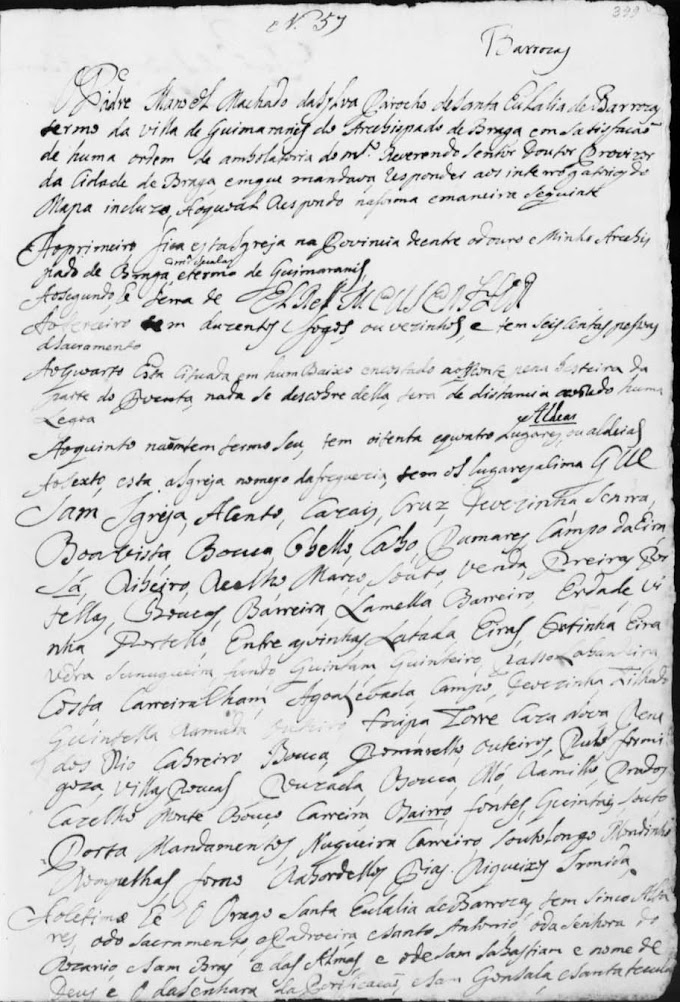 N. 57
399
Barrozas
O Padre Manoel Machado da Sylva Parocho de Santa Eulalia de Barrozas
termo da villa de Guimarães do Arcebispado de Braga em satisfacaõ
de huma ordem de ambolatoria do m.to Reverendo Senhor Doutor Provizor
da Cidade de Braga emque mandava responder aos interrogatrios do
Mapa incluzo, Aoqual Respondo nafórma emaneira Seguinte
Aoprimeiro fica esta Igreja na Provincia dentre odouro e Minho Arcebis
pado de Braga, etermo de Guimarais
Aosegundo, he terra de EL REI MEU SENHOR
Aoterceiro tem duzentos fogos, ou vezinhos, e tem seis centas pessoas
dsacramento
Aoquarto Esta Cituada em hum Baixo encostado aoMonte
parte do Poente, nada se descobre della, tera de distancia huma
Legoa
Aldeas
Aoquinto naõtem termo seu, tem oitenta equatro Lugares, ou aldeias
Aosexto, esta aIgreja nomeyo dafreguezia, tem os lugares alima QUE
Sam Igreja, Alento, Cazais, Cruz, Devezinha, Senrra,
Boavista Bouca, Obello, Cabo, Pumares, Campo da Eira
Lá, Ribeiro, Marco, Souto, Venda, Pereiras Por
tellas, Boucas, Barreira, Lamella Barreiro, Erdade Vi
nha Portello, Entre asvinhas Latada, Eiras, Cortinha Eira
fundo Quintam, Quinteiro, Passo Lavandeira
Costa Carreira Agoa Levada Campo, Devezinha Tilhado
Quintella Ramada Outeiro Torre Caza nova Pena
dos Rio Cabreiro Bouca, Pomarelho, outeiros, formi
goza, Villas Poucas Pouzada Bouca, Ramilho, Prados
Cazelho Monte Bouço Carreira Bairro, fontes, Quintãs, Souto
Porta Mandamentos, Nugueira Carreiro, Soutolongo Mondinho
forno Rabordellos Dias Irmida
Aosetimo He O Orago Santa Eulalia de Barrozas, tem sinco Alta
res, odo Sacramento, ePadroeira, esanto Antonio, oda Senhora do
Rozario, esam Bras e das Almas, e odeSam Sabastiam e nome de
Deus e O daSenhara da Porificacaõ, eSam Gonsalo, esanta tecula